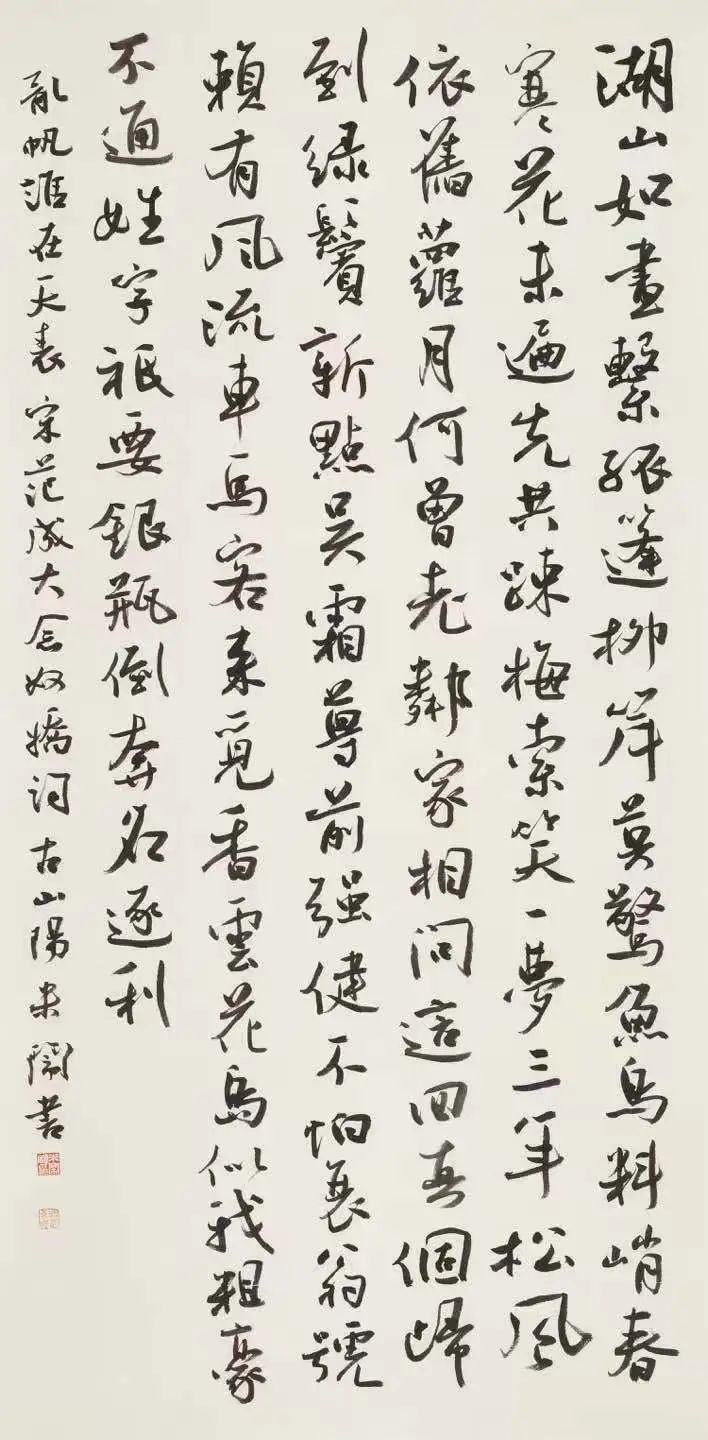 湖山如畫繫孤篷柳岸莫驚魚鳥料峭春
寒花未遍先共疎梅索笑一夢三年松風
依舊蘿月何曾老鄰家相問這回真個歸
到綠鬢新點吳霜尊前强健不怕衰翁號
賴有風流車馬客來覓香雲花島似我粗豪
不通姓字祗要銀瓶倒奔名逐利
亂帆誰在天表宋范成大念奴嬌詞古山陽朱閙書